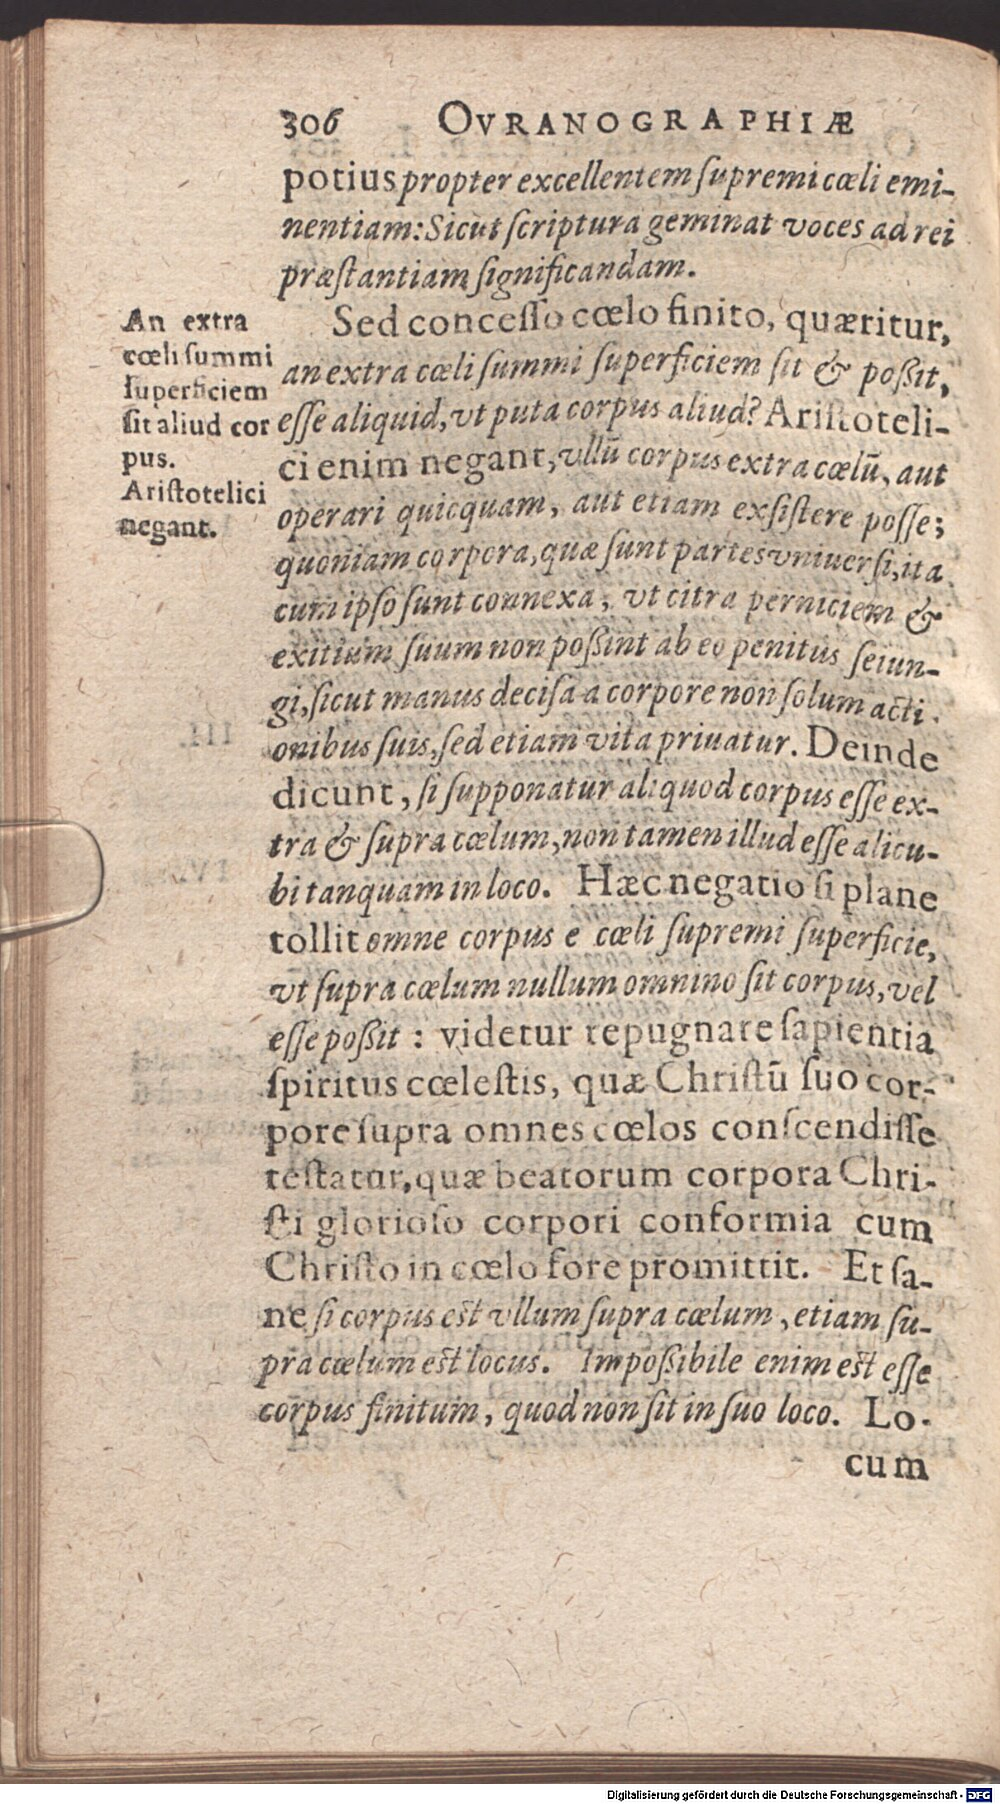 306 OVRANOGRAPHIÆ
potius propter excellentem ſupremi cœli emi-
nentiam: Sicut ſcriptura geminat voces ad rei
præſtantiam ſignificandam.
An extra
cœli ſummi
ſuperficiem
ſit aliud cor
pus.
Ariſtotelici
negant.
Sed conceſſo cœlo finito, quæritur,
an extra cœli ſummi ſuperficiem ſit & poßit,
eſſe aliquid, vt puta corpus aliud? Ariſtoteli-
ci enim negant, vllū corpus extra cœlū, aut
operari quicquam, aut etiam exſiſtere poſſe;
quoniam corpora, quæ ſunt partes vniuerſi, ita
cum ipſo ſunt connexa, vt citra perniciem &
exitium ſuum non poßint ab eo penitus ſeiun-
gi, ſicut manus deciſa a corpore non ſolum acti-
onibus ſuis, ſed etiam vita priuatur. Deinde
dicunt, ſi ſupponatur aliquod corpus eſſe ex-
tra & ſupra cœlum, non tamen illud eſſe alicu-
bi tanquam in loco. Hæc negatio ſi plane
tollit omne corpus e cœli ſupremi ſuperficie,
vt ſupra cœlum nullum omnino ſit corpus, vel
eſſe poßit : videtur repugnare ſapientia
ſpiritus cœleſtis, quæ Chriſtū ſuo cor-
pore ſupra omnes cœlos conſcendiſſe
teſtatur, quæ beatorum corpora Chri-
ſti glorioſo corpori conformia cum
Chriſto in cœlo fore promittit. Et ſa-
ne ſi corpus eſt vllum ſupra cœlum, etiam ſu-
pra cœlum eſt locus. Impoßibile enim eſt eſſe
corpus finitum, quod non ſit in ſuo loco. Lo-
cum
Digitalisierung gefördert durch die Deutsche Forschungsgemeinschaft - DFG